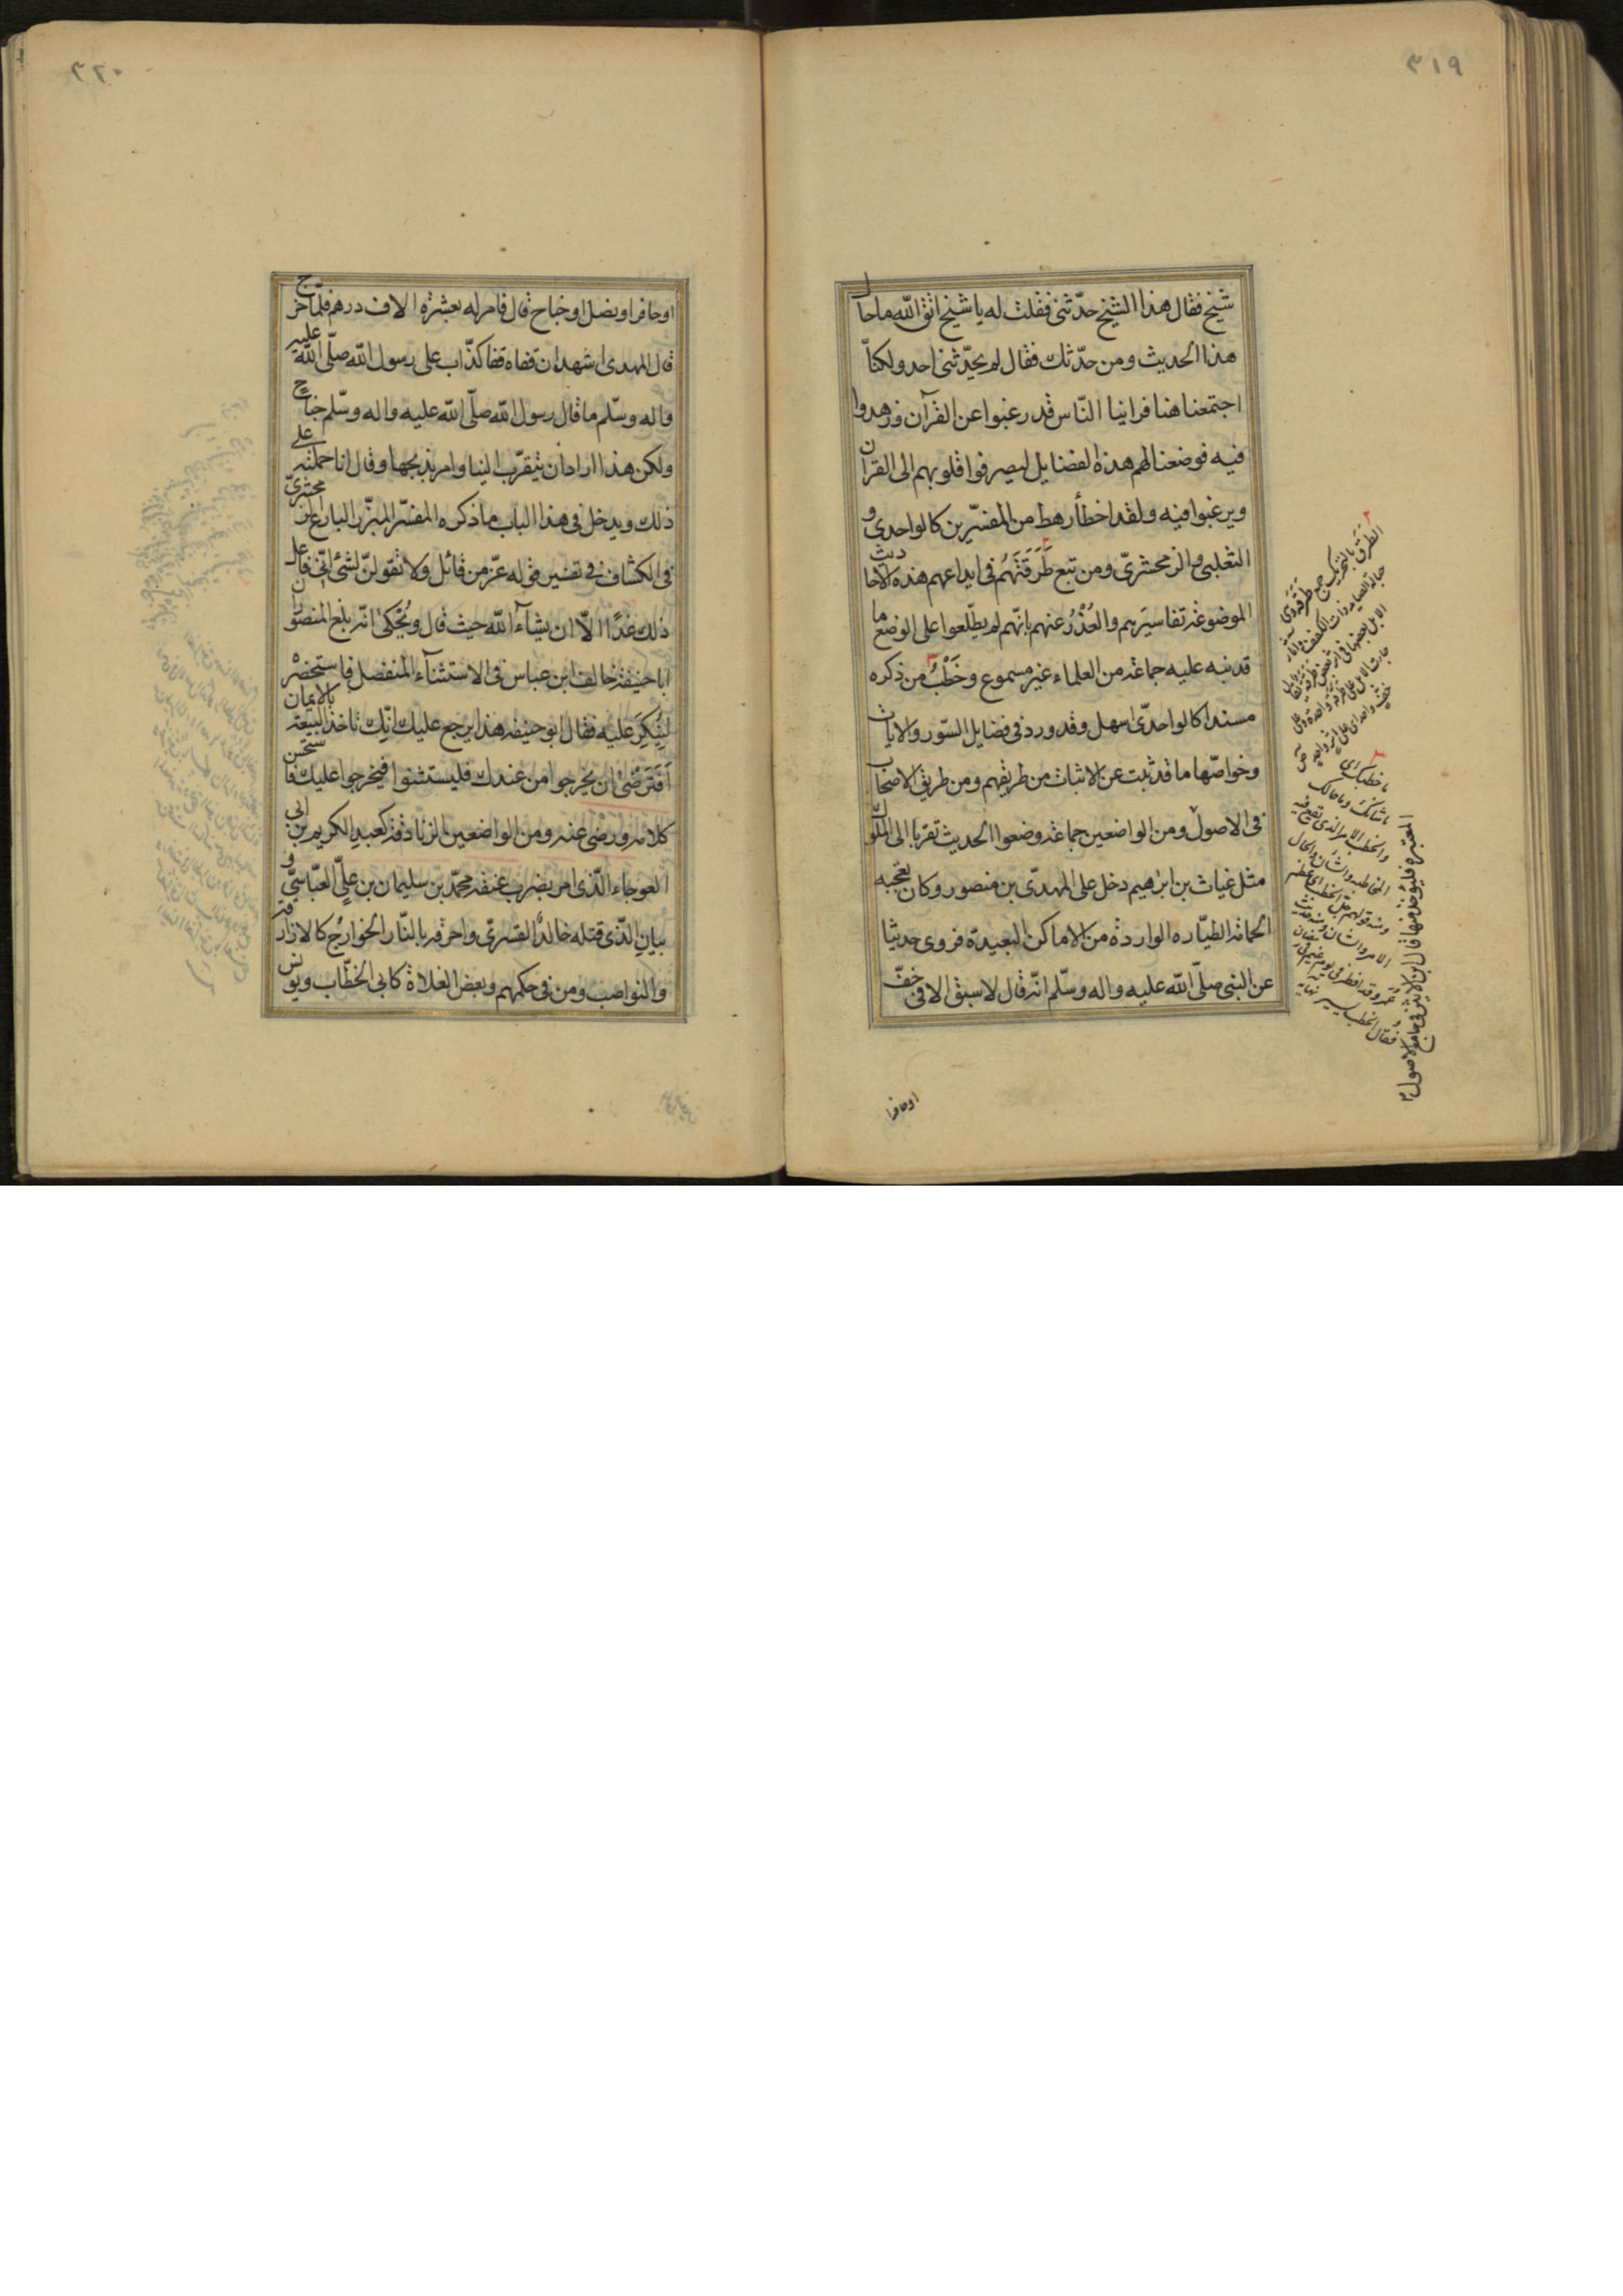 ٣١٩
شيخ فقال هذا الشيخ حدّثنى فقلت له يا شيخ اتق الله ما حال
هذا الحديث ومن حدّثك فقال لم يحدّثنى احد ولكنّا
اجتمعنا هنا فراينا النّاس قد رغبوا عن القرآن وزهدوا
فيه فوضعنا لهم هذه الفضايل ليصرفوا قلوبهم الى القران
ويرغبوا فيه ولقد اخطأ رهط من المفسّرين كالواحدى و
الثعلبى والزمخشرىّ ومن تبع طَرَقَتَهُم فى ايداعهم هذه الاحاديث
الموضوعة تفاسيَرهم والعُذْرُ عنهم بانّهم لم يطّلعوا على الوضع ما
قد نبه عليه جماعة من العلماء غير مسموع وخَطْبُ من ذكره
مسندا كالواحدّى اسهل وقد ورد فى فضايل السّور والايات
وخواصّها ما قد ثبت عن الاثبات من طريقهم ومن طريق الاصحاب
فى الاصول ومن الواضعين جماعة وضعوا الحديث تقربا الى الملوك
مثل غياث بن ابرهيم دخل على المهدىّ بن منصور وكان يعجبه
الحمامة الطيّاره الواردة من الاماكن البعيدة فروى حديثا
عن النبى صلّى الله عليه واله وسلّم انّه قال لا سبق الا فى خفّ
الطرق بالتحريك جمع طرقة وهى
حبالة الصايد ذات الكفف وآثار
الابل بعضها فى اثر بعض
جاءت الابل على طرقة واحدة
ما خطبك اى
ما شانك وما حالك
والخطب الامر الذى تقع فيه
المخاطبة والشان والحال
ومنه قولهم جل الخطب اى عظم
الامر والشان ومنه حديث
عمر وقد افطر فى يوم غيم
فقال الخطب يسير نهايه
المعتبره فليؤخذ منها قال ابن الاثير فى جامع الاصول
اوحافرا
٣٢٠
اوحافر او نصل او جناح قال فامر له بعشرة الاف درهم فلمّا خرج
قال المهدى اشهد ان قفاه قفا كذّاب على رسول الله صلّى الله عليه
واله وسلّم ما قال رسول الله صلّى الله عليه واله وسلّم جناح
ولكن هذا اراد ان يتقرّب الينا وامر بذبحها وقال انا حملته على
ذلك ويدخل فى هذا الباب ما ذكره المفسّر المبرّز البارع الزمخشرىّ
فى الكشاف فى تفسير قوله عزّ من قائل ولا تقولنّ لشئ انّى فاعل
ذلك غدًا الاّ ان يشآء الله حيث قال ويُحكى انّه بلغ المنصور ان
ابا حنيفة خالف ابن عباس فى الاستثنآء المنفصل فاستحضره
لِيُنكِرَ عليه فقال ابو حنيفه هذا يرجع عليك انّك تاخذ البيعة بالايمان
اَفَتَرضْىٰ ان يخرجوا من عندك فليستثنوا فيخرجوا عليك فاستحسن
كلامه ورضى عنه ومن الواضعين الزنادقة كعبد الكريم بن ابى
العوجاء الّذى امر بضرب عنقه محمّد بن سليمان بن علىّ العبّاسىّ و
بيان الّذى قتله خالدٌ القسرىّ واحرقه بالنّار الخوارج كالازارقة
والنواصب ومن فى حكمهم وبعض الغلاة كابى الخطّاب ويونس